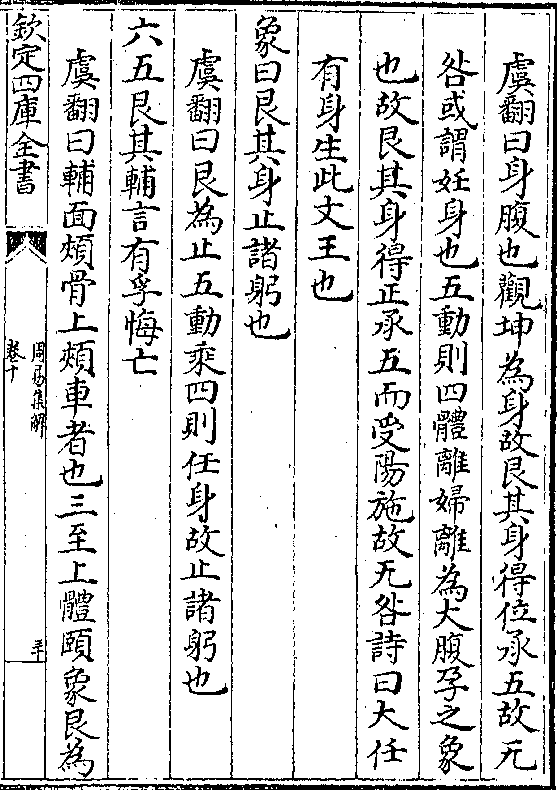 虞翻曰身腹也觀坤為身故艮其身得位承五故无
咎或謂妊身也五動則四體離婦離為大腹孕之象
也故艮其身得正承五而受陽施故无咎詩曰大任
有身生此文王也
象曰艮其身止諸躬也
虞翻曰艮為止五動乘四則任身故止諸躬也
六五艮其輔言有孚悔亡
虞翻曰輔面頰骨上頰車者也三至上體頤象艮為
欽定四庫全書
周易集解
卷十